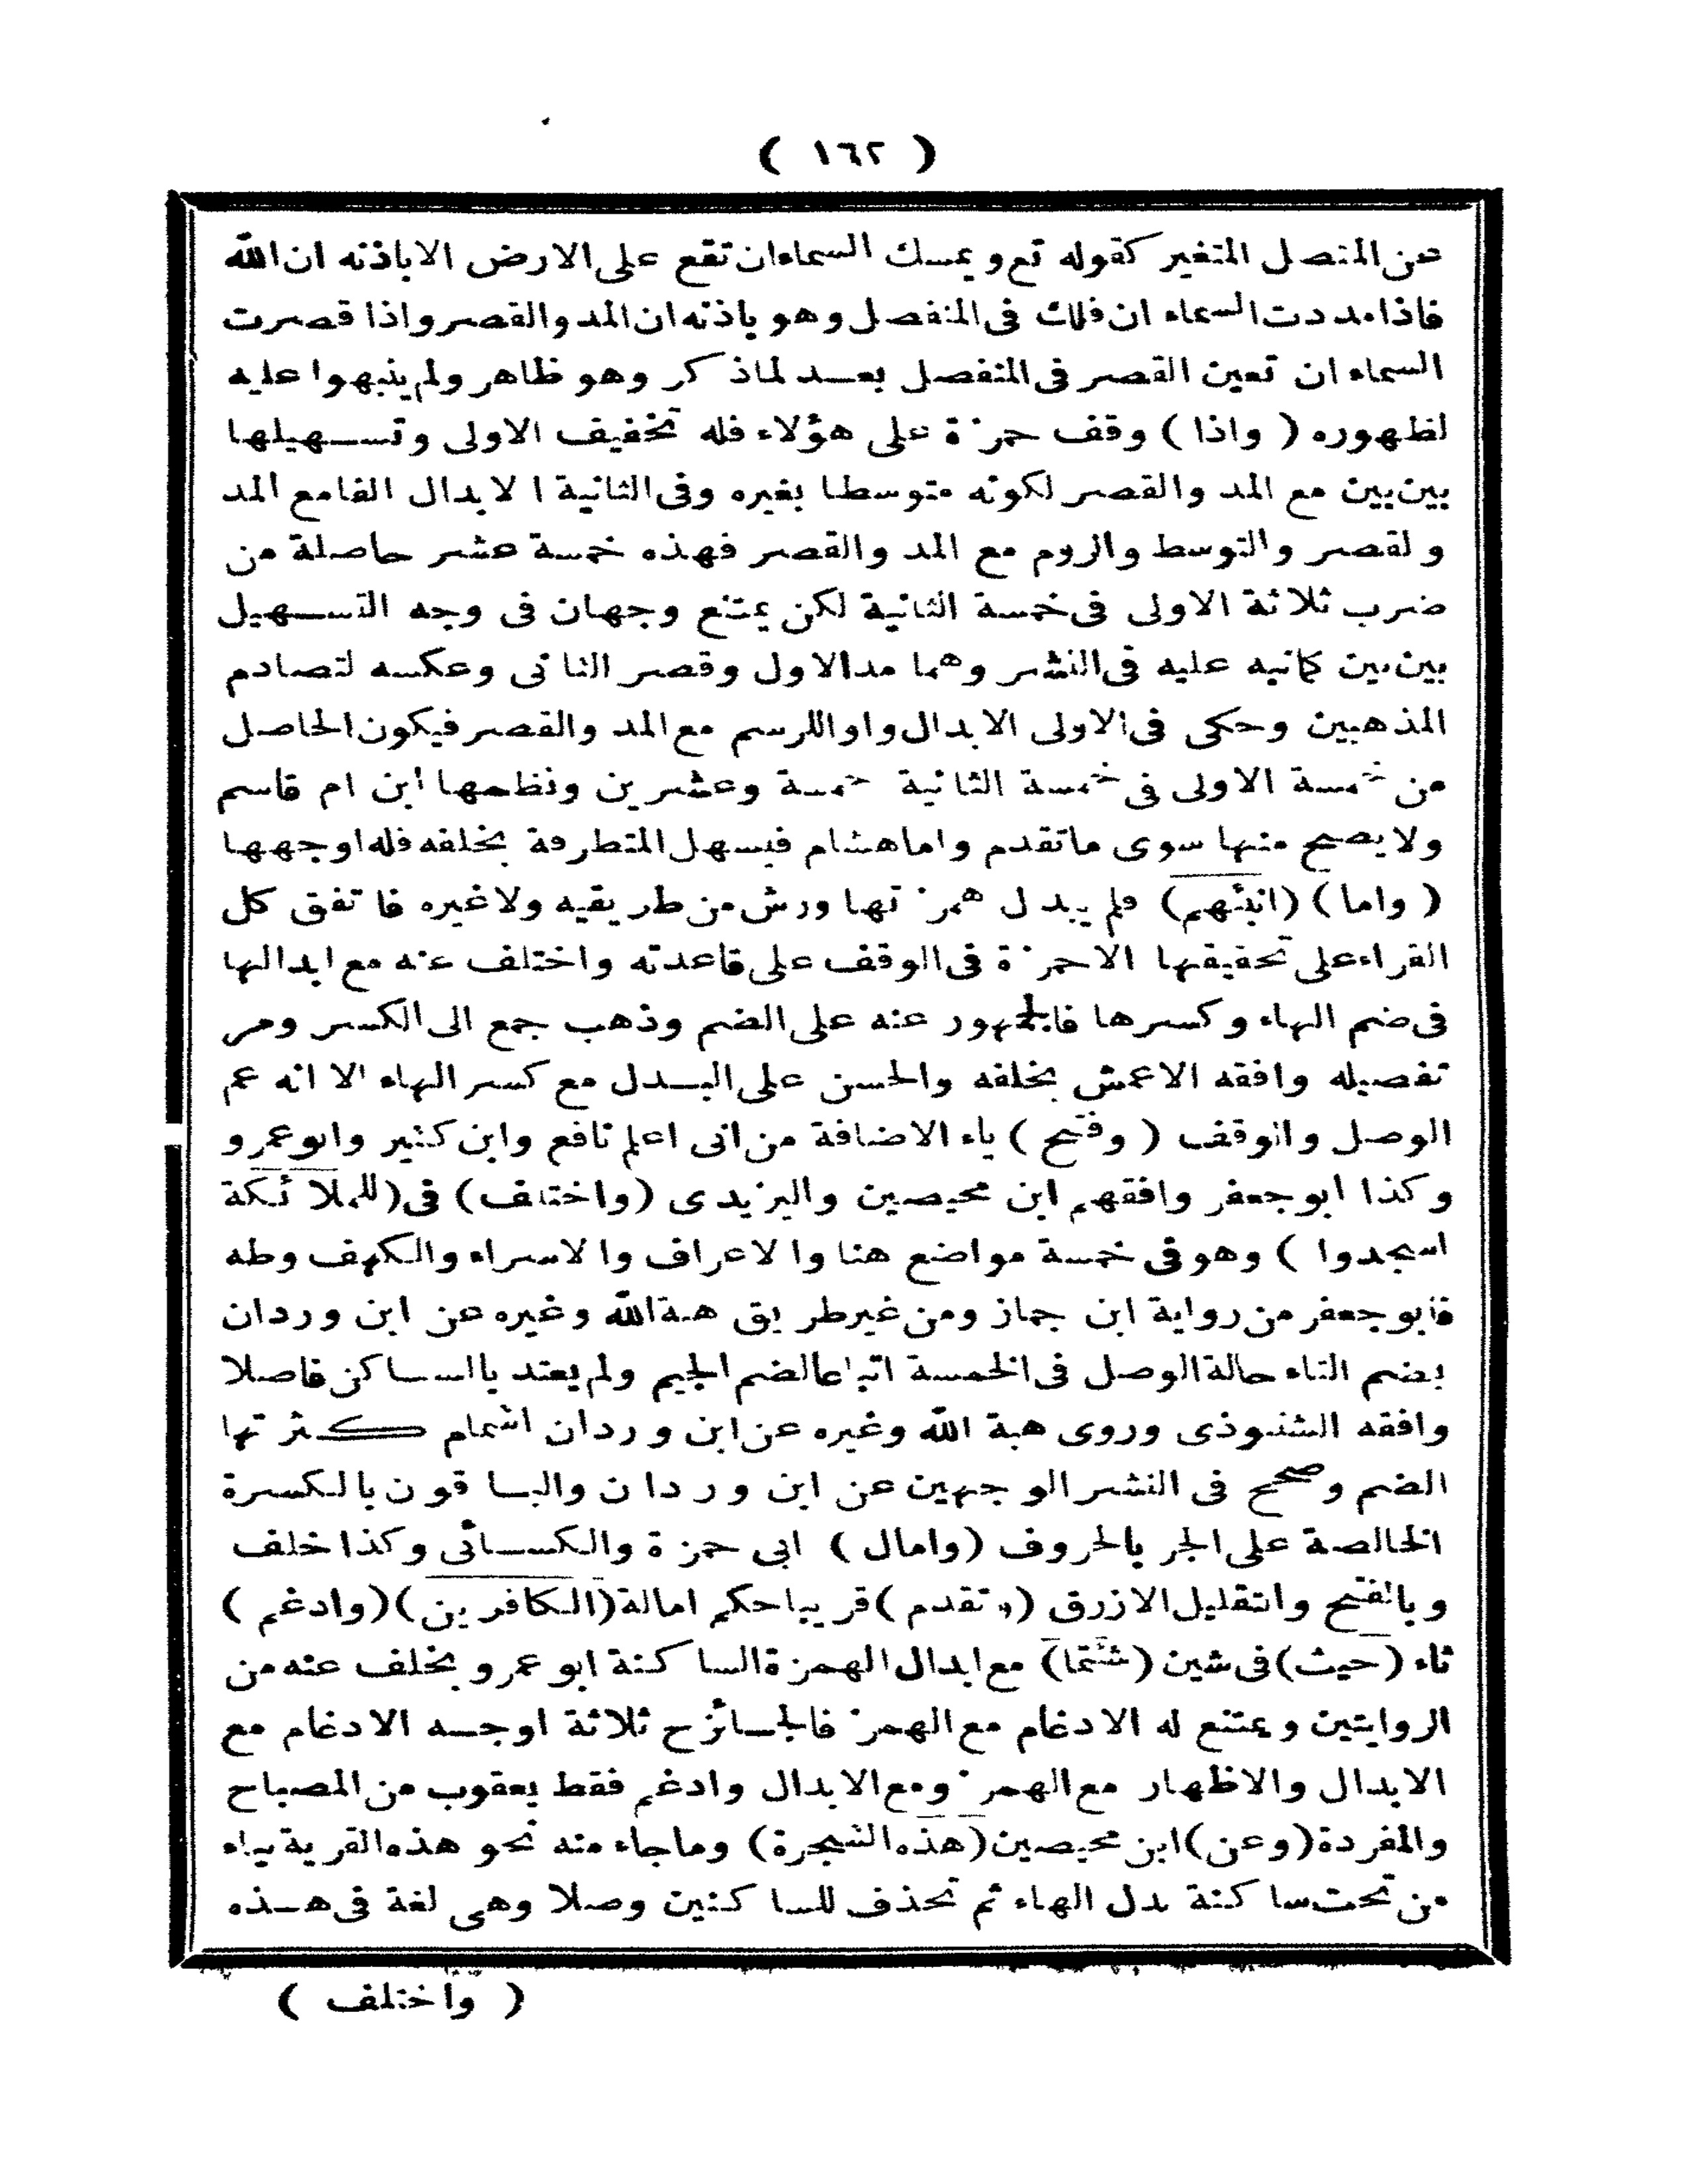 ( ١٦٢ )
عن المنصل المتغير كقوله تع ويمسك السماء ان تقع على الارض الا باذنه ان الله
فاذا مددت السماء ان فلك فى المنفصل وهو باذنه ان المد والقصر واذا قصرت
السماء ان تعين القصر فى المنفصل بعد لماذكر وهو ظاهر ولم ينبهوا عليه
لظهوره ( واذا ) وقف حمزة على هؤلاء فله تخفيف الاولى وتسهيلها
بين بين مع المد والقصر لكونه متوسطا بغيره وفى الثانية الابدال الفا مع المد
ولقصر والتوسط والروم مع المد والقصر فهذه خمسة عشر حاصلة من
ضرب ثلاثة الاولى فى خمسة الثانية لكن يمتنع وجهان فى وجه التسهيل
بين بين كمانبه عليه فى النشر وهما مد الاول وقصر الثانى وعكسه لتصادم
المذهبين وحكى فى الاولى الابدال واوا للرسم مع المد والقصر فيكون الحاصل
من خمسة الاولى فى خمسة الثانية خمسة وعشرين ونظمها ابن ام قاسم
ولايصح منها سوى ماتقدم واما هشام فيسهل المتطرفة بخلفه فله اوجهها
( واما ) (انبئهم) فلم يبدل همزتها ورش من طريقيه ولاغيره فاتفق كل
القراء على تحقيقها الاحمزة فى الوقف على قاعدته واختلف عنه مع ابدالها
فى ضم الهاء وكسرها فالجمهور عنه على الضم وذهب جمع الى الكسر ومر
تفصيله وافقه الاعمش بخلفه والحسن على البدل مع كسر الهاء الا انه عم
الوصل والوقف ( وفتح ) ياء الاضافة من انى اعلم نافع وابن كثير وابوعمرو
وكذا ابوجعفر وافقهم ابن محيصين واليزيدى (واختلف) فى (للملائكة
اسجدوا ) وهو فى خمسة مواضع هنا والاعراف والاسراء والكهف وطه
فابوجعفر من رواية ابن جماز ومن غير طريق هبة الله وغيره عن ابن وردان
بضم التاء حالة الوصل فى الخمسة اتباعا لضم الجيم ولم يعتد باالساكن فاصلا
وافقه الشنبوذى وروى هبة الله وغيره عن ابن وردان اشمام كثرتها
الضم وصحح فى النشر الوجهين عن ابن وردان والباقون بالكسرة
الخالصة على الجر بالحروف (وامال ) ابى حمزة والكسائى وكذا خلف
وبالفتح والتقليل الازرق ( تقدم ) قريبا حكم امالة (الكافرين) (وادغم )
ثاء (حيث) فى شين (شئتما) مع ابدال الهمزة الساكنة ابوعمرو بخلف عنه من
الروايتين ويمتنع له الادغام مع الهمز فالجائزح ثلاثة اوجه الادغام مع
الابدال والاظهار مع الهمز ومع الابدال وادغم فقط يعقوب من المصباح
والمفردة (وعن) ابن محيصين (هذه الشجرة) وماجاء منه نحو هذه القرية بياء
من تحت ساكنة بدل الهاء ثم تحذف للساكنين وصلا وهى لغة فى هذه
( واختلف )